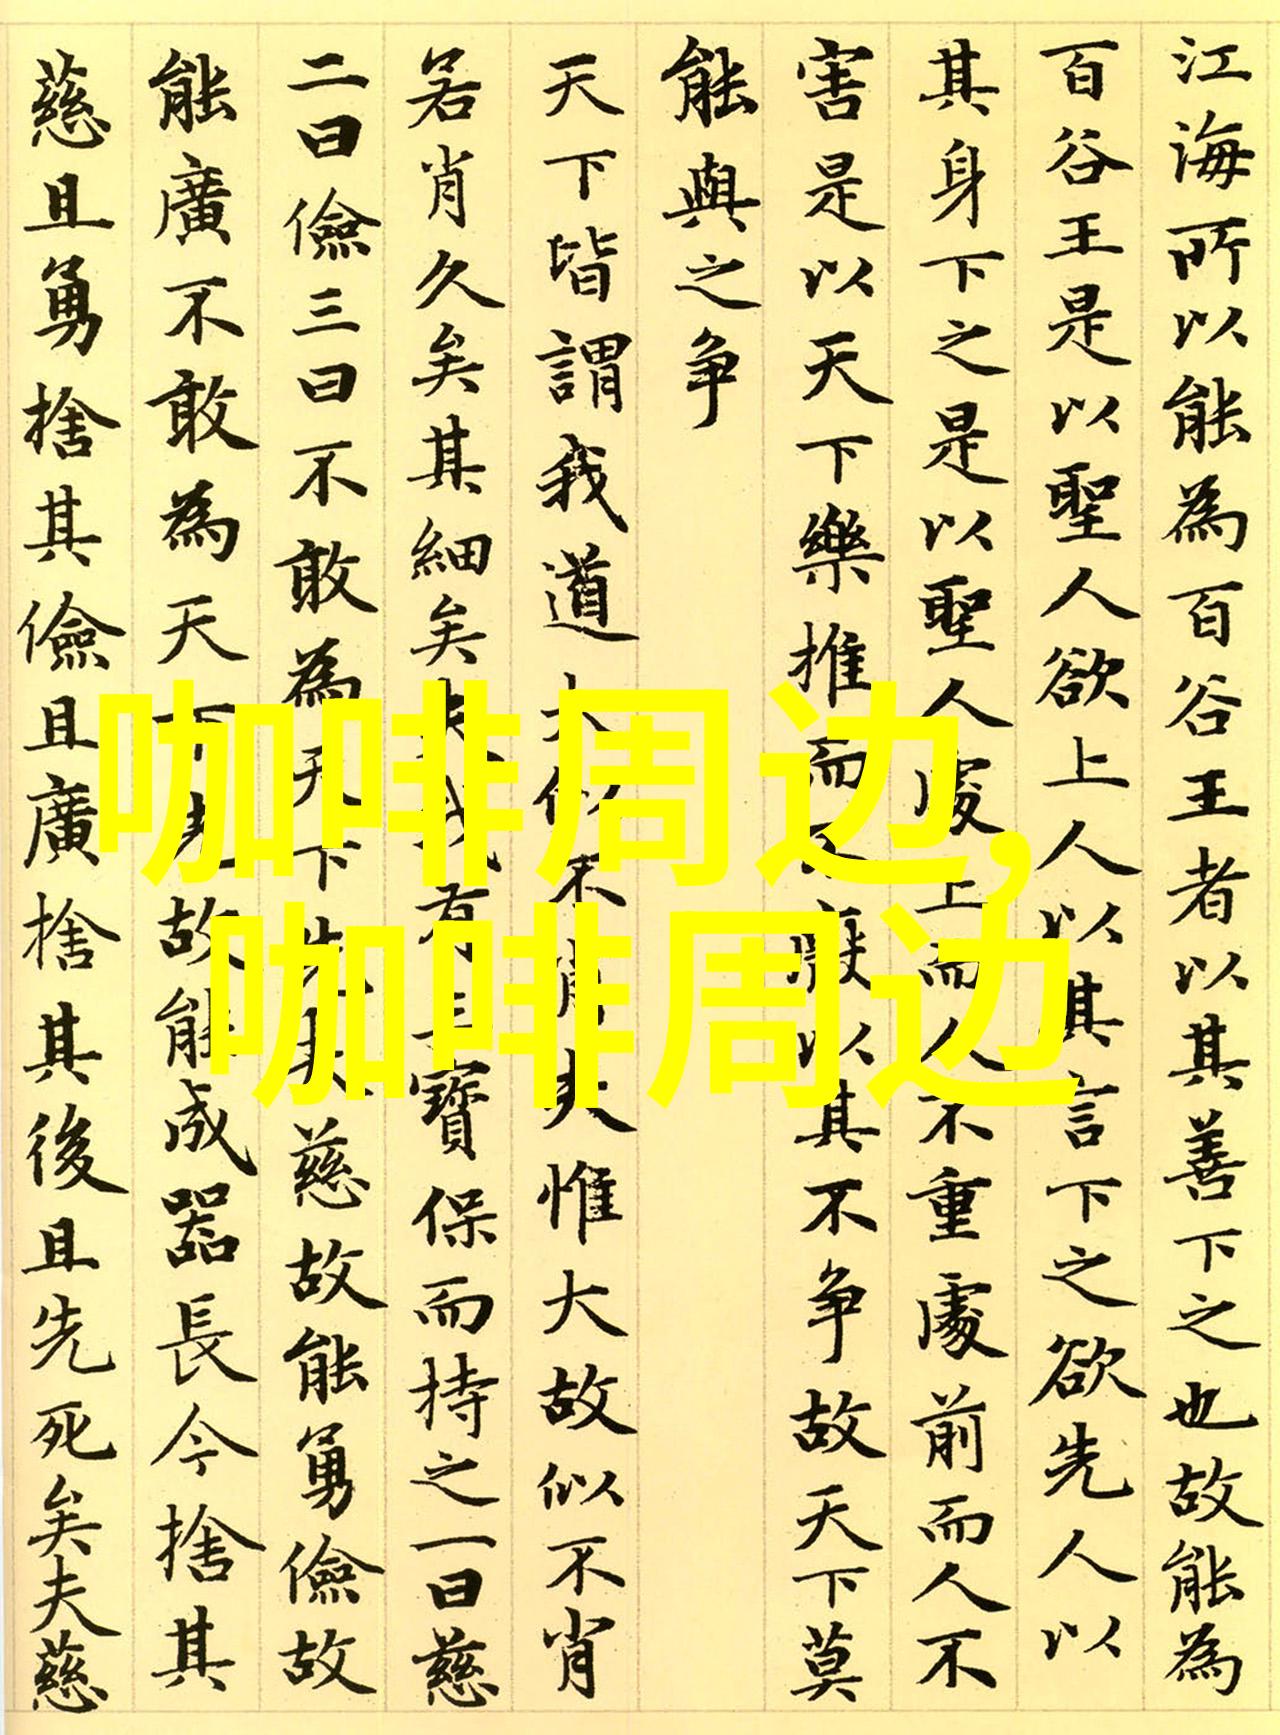 江海所以能為百谷王者以其善下之也故能為
百谷王是以聖人欲上人以其言下之欲先人以
其身下之是以聖人處上而人不重處前而人不
害是以天下樂推而不厭以其不争故天下莫
能與之争
天下皆謂我道大似不肖夫惟大故似不肖
若肖久矣其細矣夫我有三寶保而持之一曰慈
二曰儉三曰不敢為天下先夫慈故能勇儉故
能廣不敢為天下先故能成器長今捨其
慈且勇捨其儉且廣捨其後且先死矣夫慈
咖啡周边,
咖啡周边